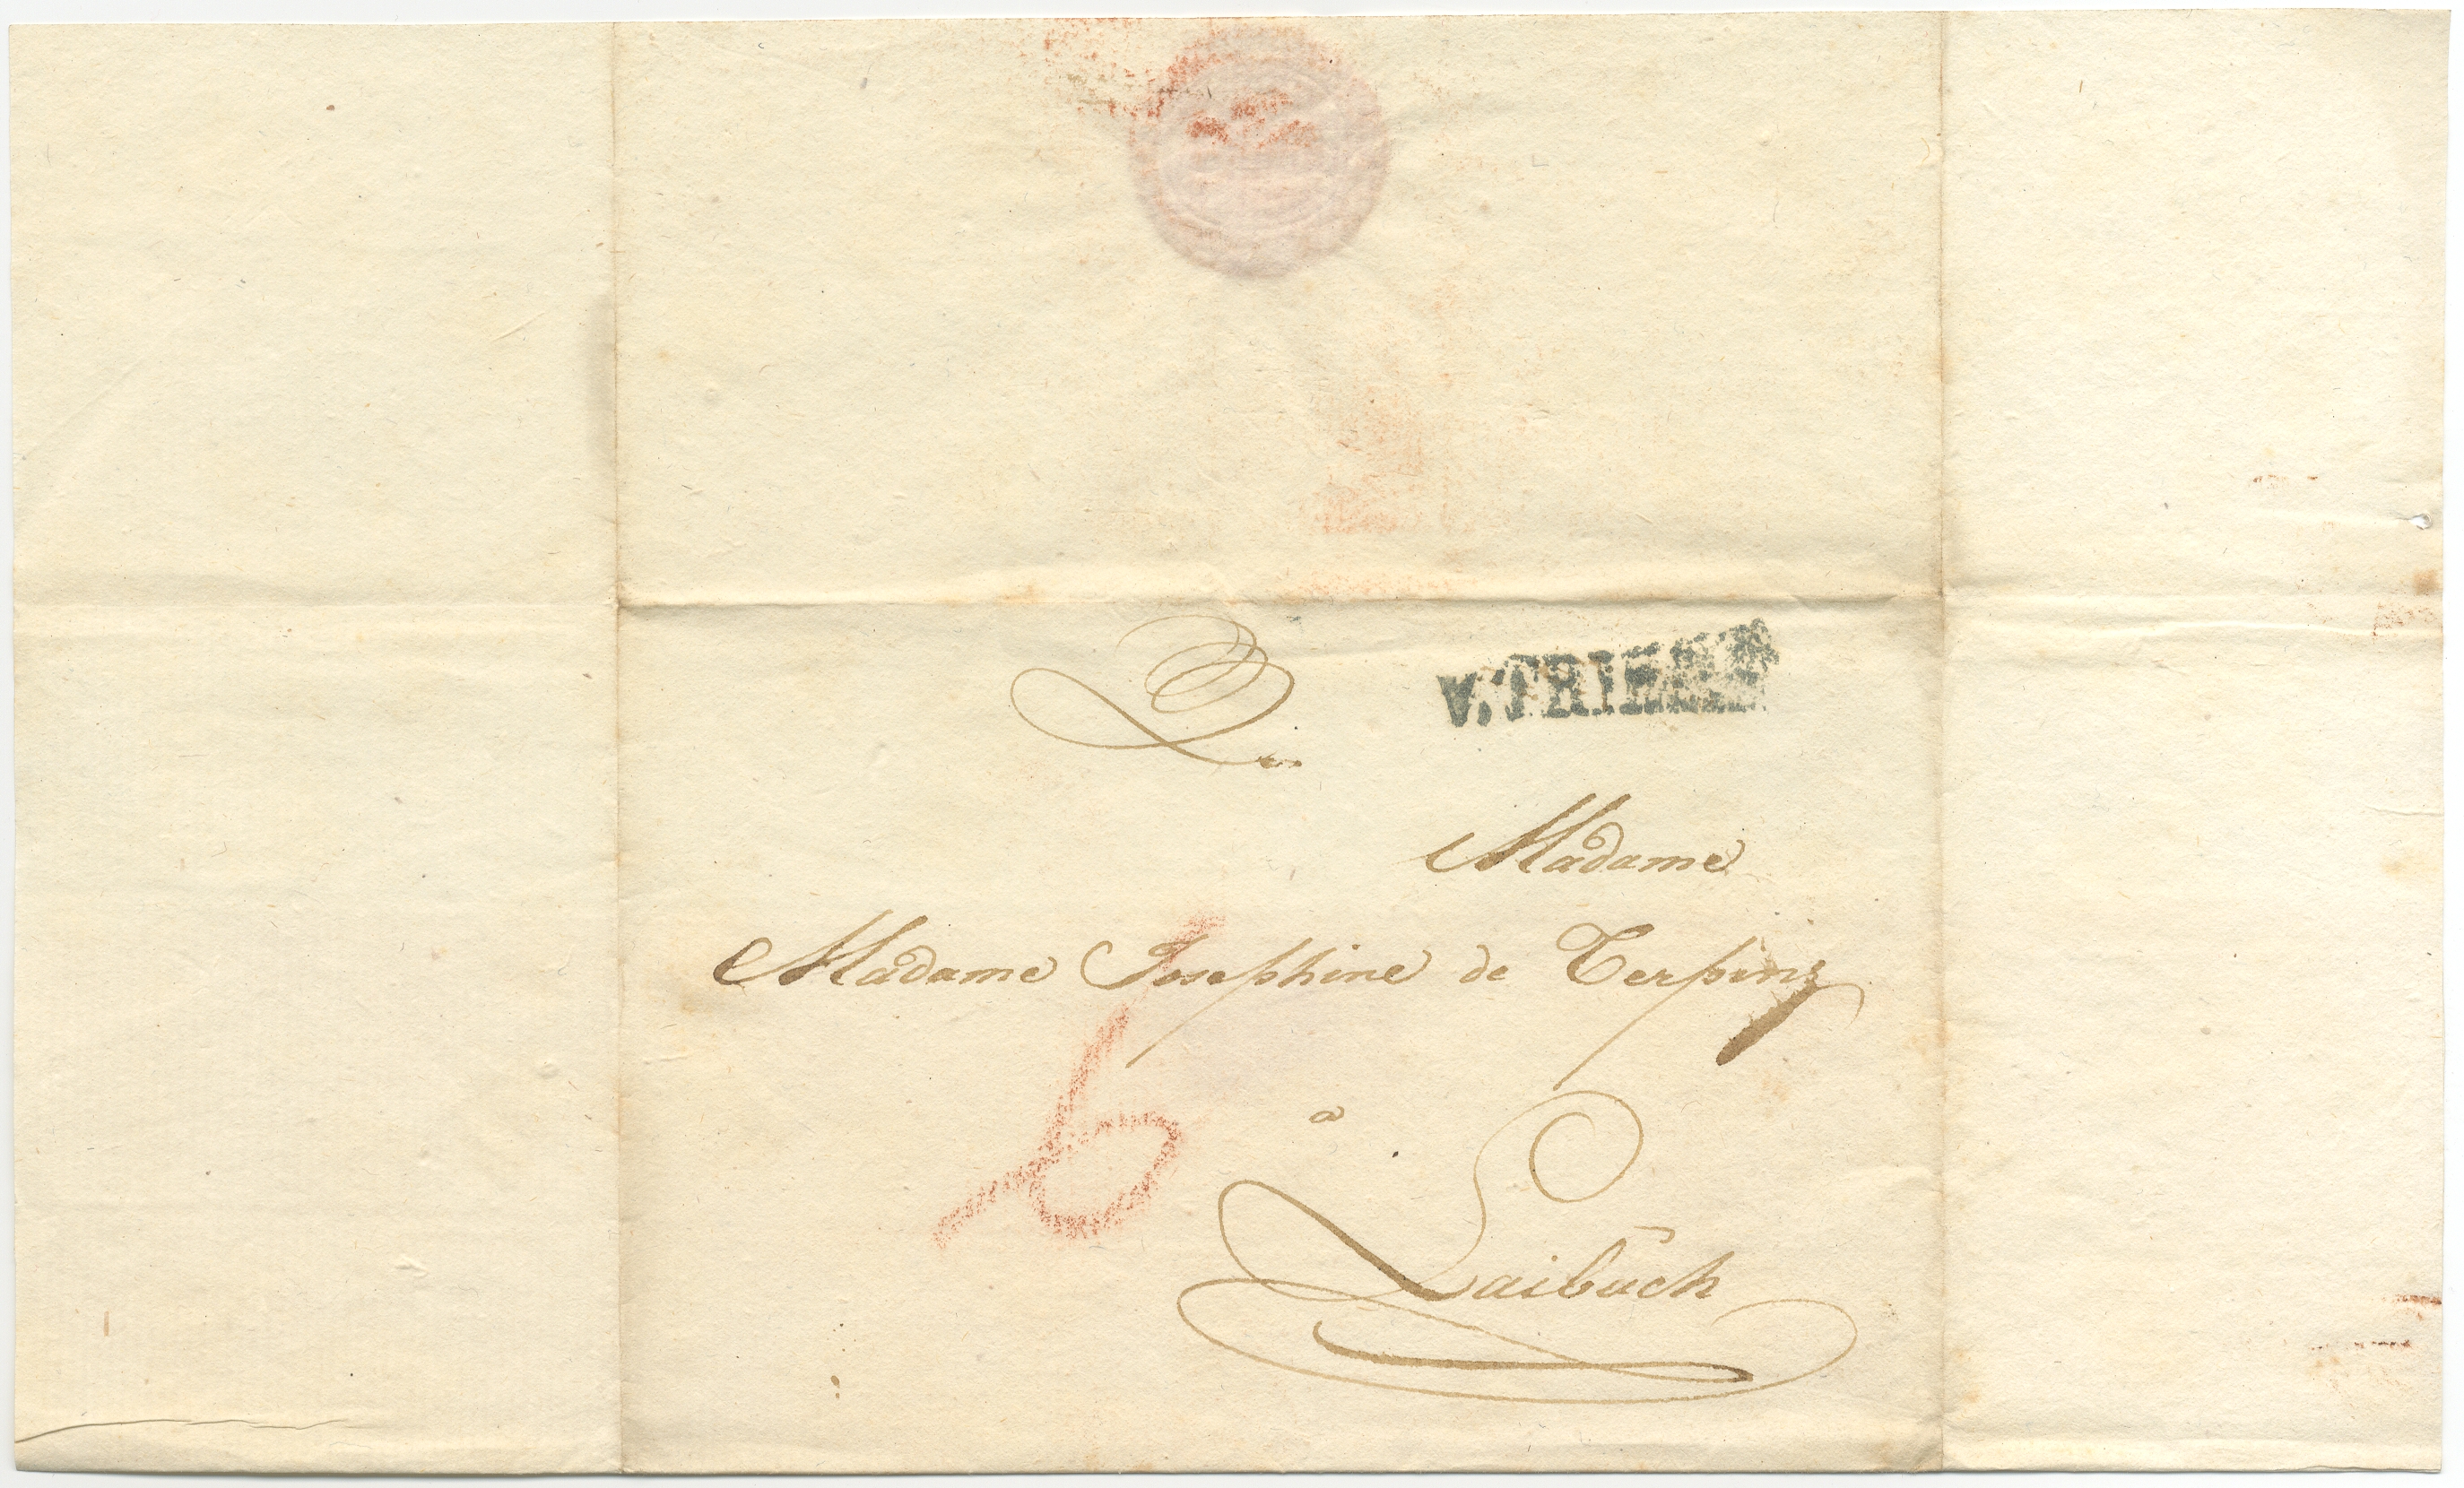 V. TRIEST
Madame
Madame Josephine de Terpinz
6
a
Laibach